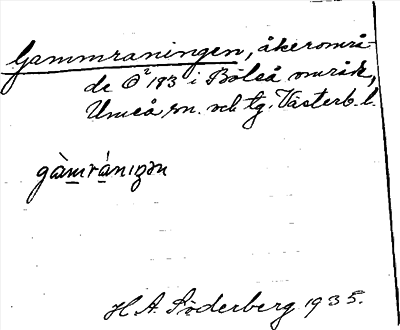 Gammraningen, åkerområ-
de O² 193 i Bölså område,
Umeå sn. och tg. Västerb. l.
gàmránıŋən
H. A. Söderberg 1935.